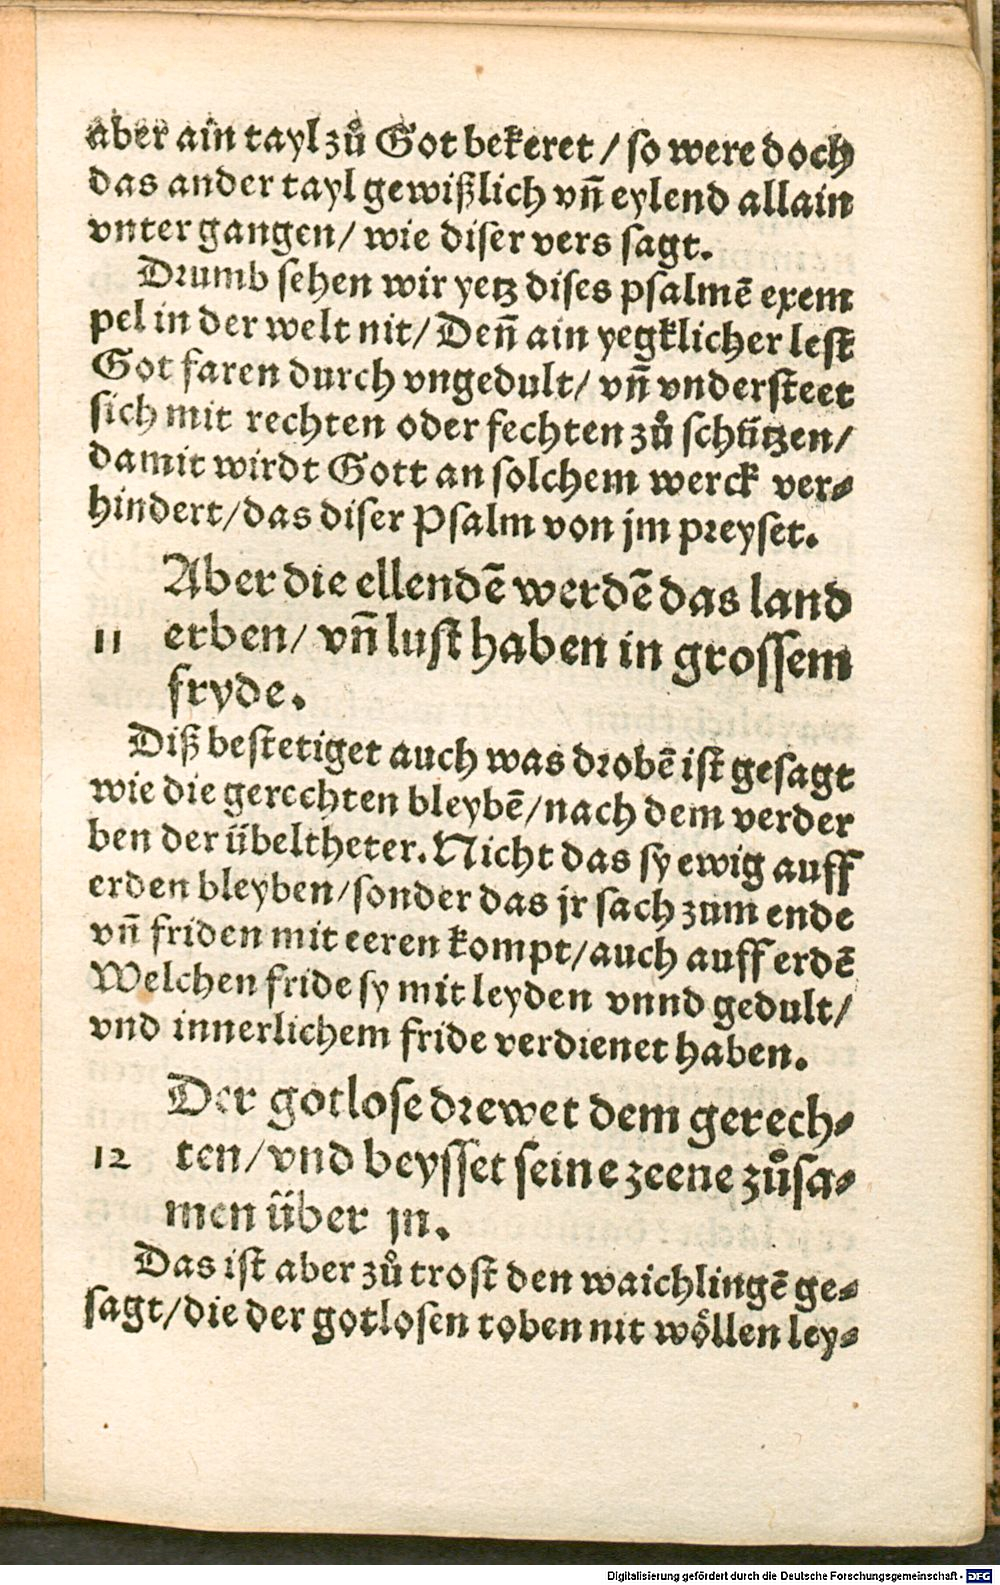 aber ain tayl zuͦ Got bekeret / so were doch
das ander tayl gewißlich vñ eylend allain
vnter gangen / wie diser vers sagt.
Drumb sehen wir yetz dises psalmẽ exem
pel in der welt nit / Deñ ain yegklicher lest
Got faren durch vngedult / vñ vndersteet
sich mit rechten oder fechten zuͦ schützen /
damit wirdt Gott an solchem werck ver⸗
hindert / das diser Psalm von jm preyset.
Aber die ellendẽ werdẽ das land
11 erben / vñ lust haben in grossem
fryde.
Diß bestetiget auch was drobẽ ist gesagt
wie die gerechten bleybẽ / nach dem verder
ben der übeltheter. Nicht das sy ewig auff
erden bleyben / sonder das jr sach zum ende
vñ friden mit eeren kompt / auch auff erdẽ
Welchen fride sy mit leyden vnnd gedult /
vnd innerlichem fride verdienet haben.
Der gotlose drewet dem gerech⸗
12 ten / vnd beysset seine zeene zuͦsa⸗
men über jn.
Das ist aber zuͦ trost den waichlingẽ ge⸗
sagt / die der gotlosen toben nit woͤllen ley⸗
Digitalisierung gefördert durch die Deutsche Forschungsgemeinschaft - DFG